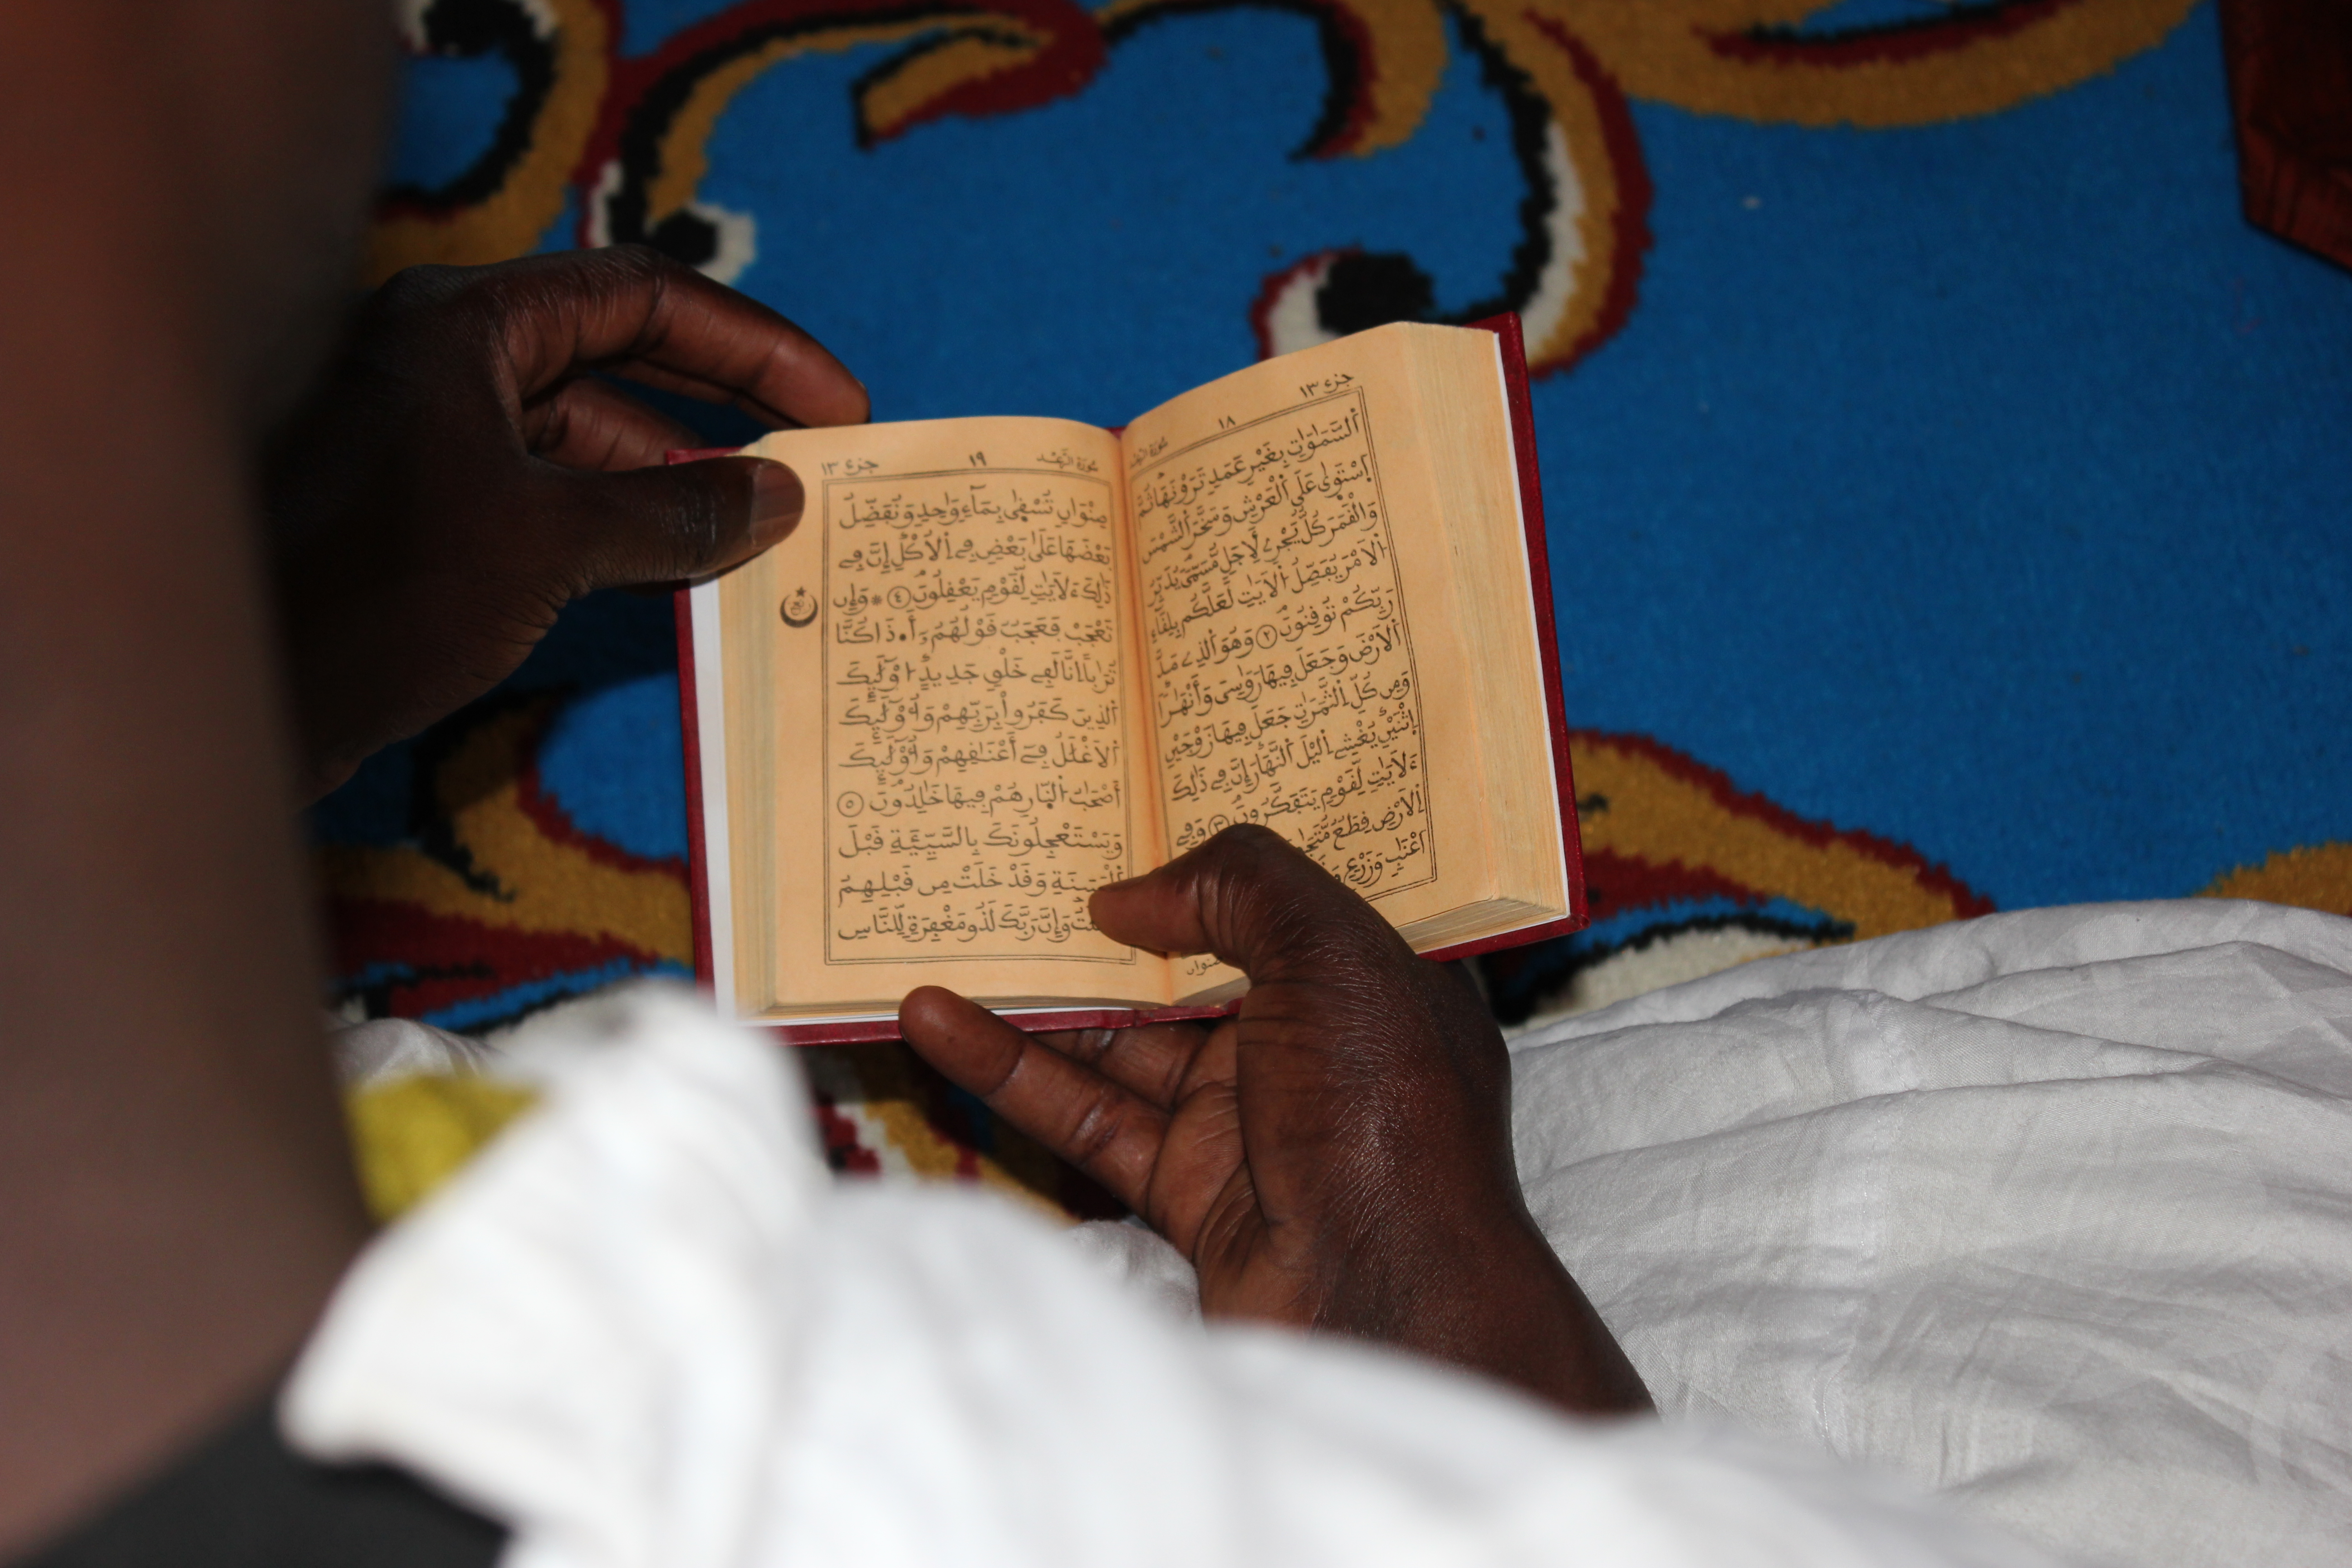 جزء ١٣ ١٨ سورة الرعد
اَ۬لسَّمَٰوَٰتِ بِغَيْرِ عَمَدٍ تَرَوْنَهَا ثُمَّ
اَ۪سْتَوَىٰ عَلَى اَ۬لْعَرْشِ وَسَخَّرَ اَ۬لشَّمْسَ
وَالْقَمَرَ كُلٌّ يَجْرِے لِأَجَلٍ مُّسَمّىٗ يُدَبِّرُ
اُ۬لَامْرَ يُفَصِّلُ اُ۬لَايَٰتِ لَعَلَّكُم بِلِقَآءِ
رَبِّكُمْ تُوقِنُونَ ٢ وَهُوَ اَ۬لذِے مَدَّ
اَ۬لَارْضَ وَجَعَلَ فِيهَا رَوَٰسِىَ وَأَنْهَٰراٗ
وَمِن كُلِّ اِ۬لثَّمَرَٰتِ جَعَلَ فِيهَا زَوْجَيْنِ
اِ۪ثْنَيْنِ يُغْشِے اِ۬ليْلَ اَ۬لنَّهَارَ إِنَّ فِے ذَٰلِكَ
ءَلَايَٰتٖ لِّقَوْمٖ يَتَفَكَّرُونَ ٣ وَفِے
اِ۬لَارْضِ قِطَعٌ
أَعْنَٰبٖ وَزَرْعٖ
صنوان
جزء ١٣ ١٩ سورة الرعد
صِنْوَانٖ تُسْقَىٰ بِمَآءٖ وَٰحِدٖ وَنُفَضِّلُ
بَعْضَهَا عَلَىٰ بَعْضٖ فِے اِ۬لُاكْلِ إِنَّ فِے
ذَٰلِكَ ءَلَايَٰتٖ لِّقَوْمٖ يَعْقِلُونَ ٤ * وَإِن
تَعْجَبْ فَعَجَبٞ قَوْلُهُمُۥٓ أَ.ذَا كُنَّا
تُرَٰباً اِنَّا لَفِے خَلْقٖ جَدِيدٍ ا۟وْلَٰٓئِكَ
اَ۬لذِينَ كَفَرُواْ بِرَبِّهِمْ وَأُوْلَٰٓئِكَ
اَ۬لَاغْلَٰلُ فِےٓ أَعْنَٰقِهِمْ وَأُوْلَٰٓئِكَ
أَصْحَٰبُ اُ۬لنّ۪ارِ هُمْ فِيهَا خَٰلِدُونَ ٥
وَيَسْتَعْجِلُونَكَ بِالسَّيِّئَةِ قَبْلَ
اَ۬لْحَسَنَةِ وَقَدْ خَلَتْ مِن قَبْلِهِمُ
وَإِنَّ رَبَّكَ لَذُو مَغْفِرَةٖ لِّلنَّاسِ